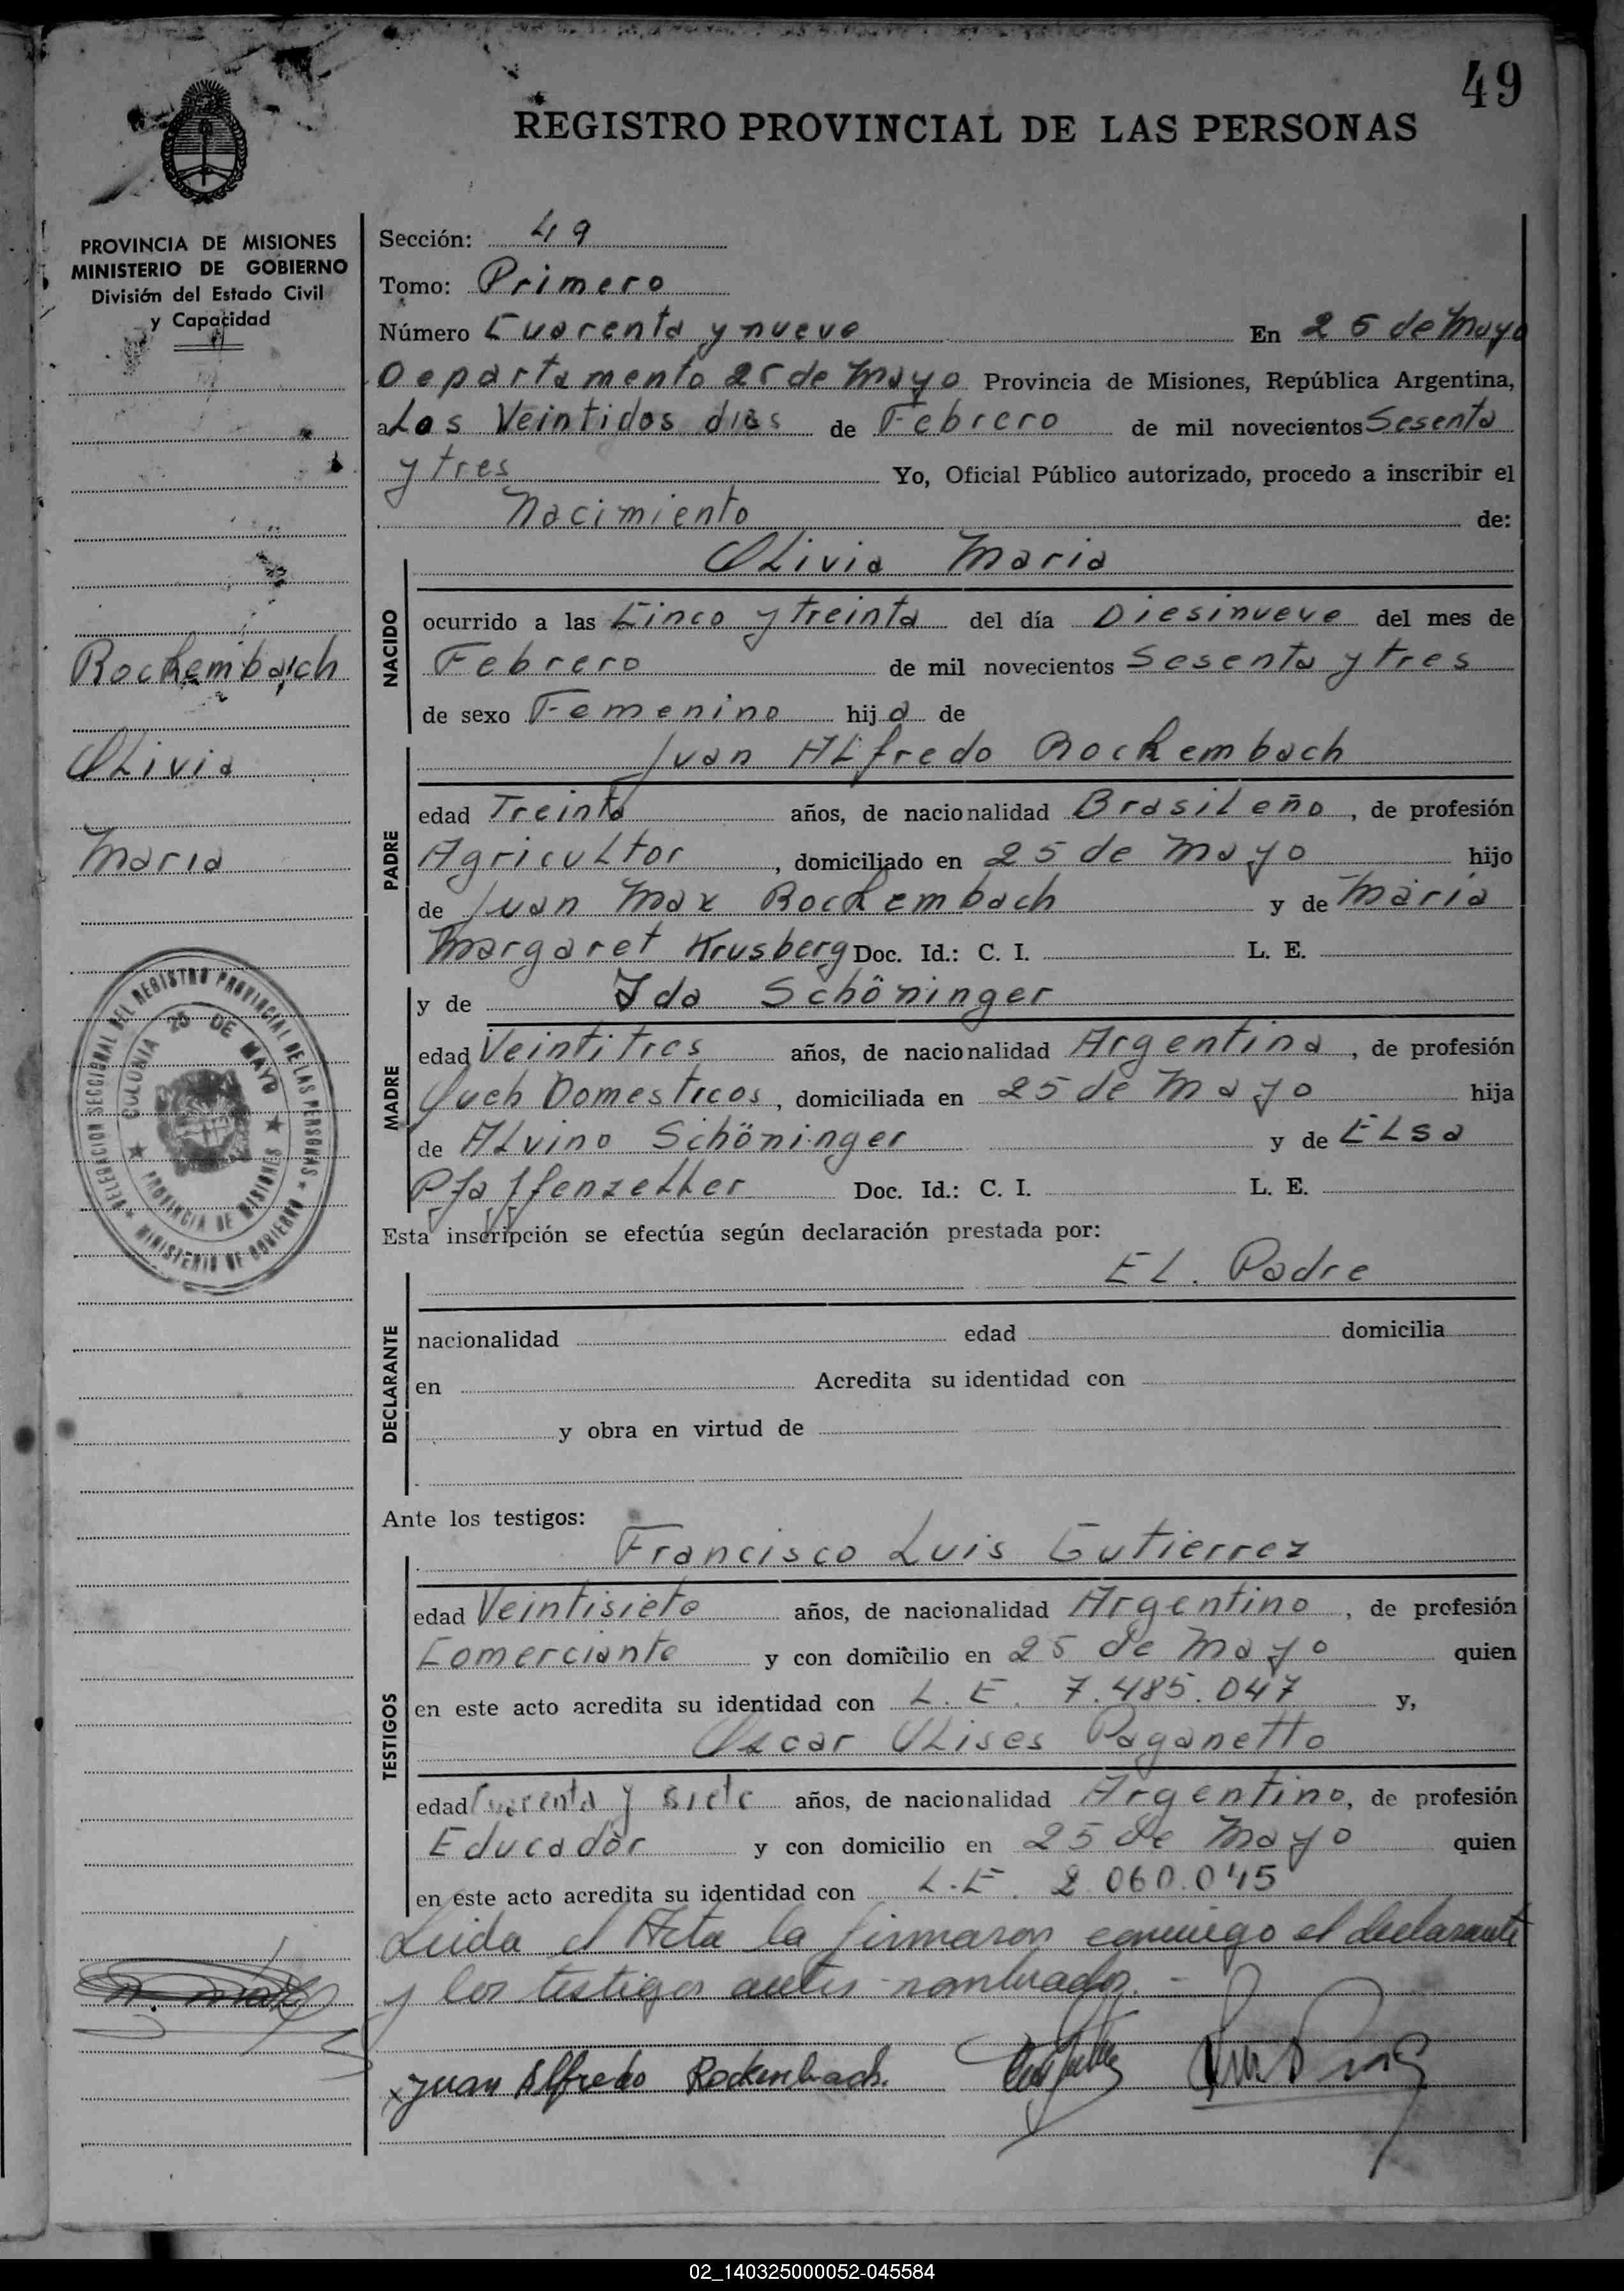 49
REGISTRO PROVINCIAL DE LAS PERSONAS
PROVINCIA DE MISIONES
MINISTERIO DE GOBIERNO
División del Estado Civil
y Capacidad
Rockembach
Olivia
Maria
DELEGACION SECCIONAL DEL REGISTRO PROVINCIAL DE LAS PERSONAS ★ MINISTERIO DE GOBIERNO ★
COLONIA 25 DE MAYO ★ PROVINCIA DE MISIONES ★
Sección: 49
Tomo: Primero
Número Cuarenta y nueve En 25 de Mayo
Departamento 25 de Mayo Provincia de Misiones, República Argentina,
a Los Veintidos dias de Febrero de mil novecientos Sesenta
y tres Yo, Oficial Público autorizado, procedo a inscribir el
Nacimiento de:
NACIDO
Olivia Maria
ocurrido a las Cinco y treinta del día Diesinueve del mes de
Febrero de mil novecientos Sesenta y tres
de sexo Femenino hija de
PADRE
Juan Alfredo Rockembach
edad Treinta años, de nacionalidad Brasileño, de profesión
Agricultor, domiciliado en 25 de Mayo hijo
de Juan Max Rockembach y de Maria
Margaret Krusberg Doc. Id.: C. I. L. E.
MADRE
y de Ida Schöninger
edad Veintitres años, de nacionalidad Argentina, de profesión
Queh Domesticos, domiciliada en 25 de Mayo hija
de Alvino Schöninger y de Elsa
Pfaffenzeller Doc. Id.: C. I. L. E.
Esta inscripción se efectúa según declaración prestada por:
DECLARANTE
El. Padre
nacionalidad edad domicilia
en Acredita su identidad con
y obra en virtud de
Ante los testigos:
TESTIGOS
Francisco Luis Gutierrez
edad Veintisiete años, de nacionalidad Argentino, de profesión
Comerciante y con domicilio en 25 de Mayo quien
en este acto acredita su identidad con L. E. 7.485.047 y,
Oscar Ulises Paganetto
edad Cuarenta y siete años, de nacionalidad Argentino, de profesión
Educador y con domicilio en 25 de Mayo quien
en este acto acredita su identidad con L.E. 2.060.045
Leida el Acta la firmaron conmigo el declarante
y los testigos antes nombrados.-
x Juan Alfredo Rockenbach.
02_140325000052-045584